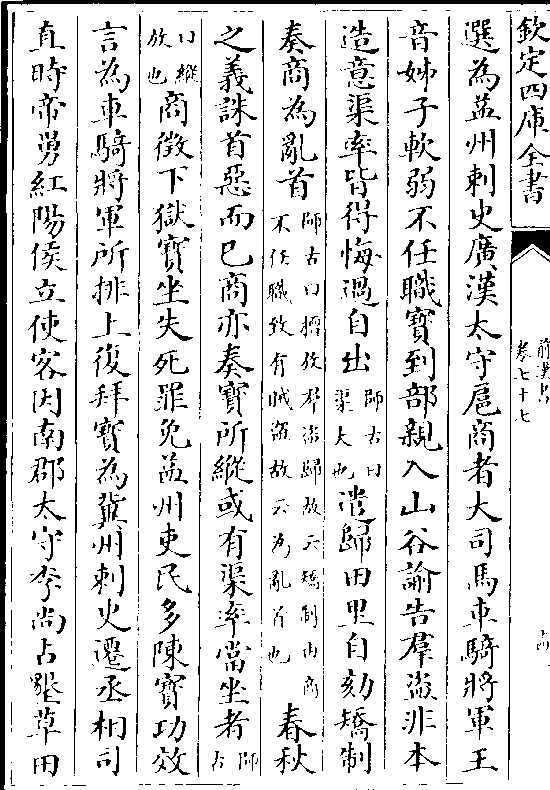 欽定四庫全書
前漢書
卷七十七
選為益州刺史廣漢太守扈商者大司馬車騎將軍王
音姊子軟弱不任職寶到部親入山谷諭告羣盜非本
造意渠率皆得悔過自出師古曰渠大也遣歸田里自刻矯制
奏商為亂首師古曰擅放羣盜歸故云矯制由商不任職致有賊盜故云為亂首也春秋
之義誅首惡而已商亦奏寶所縱或有渠率當坐者師古
曰縱放也商徵下獄寶坐失死罪免益州吏民多陳寶功效
言為車騎將軍所排上復拜寶為冀州刺史遷丞相司
直時帝舅紅陽侯立使客因南郡太守李尚占墾草田